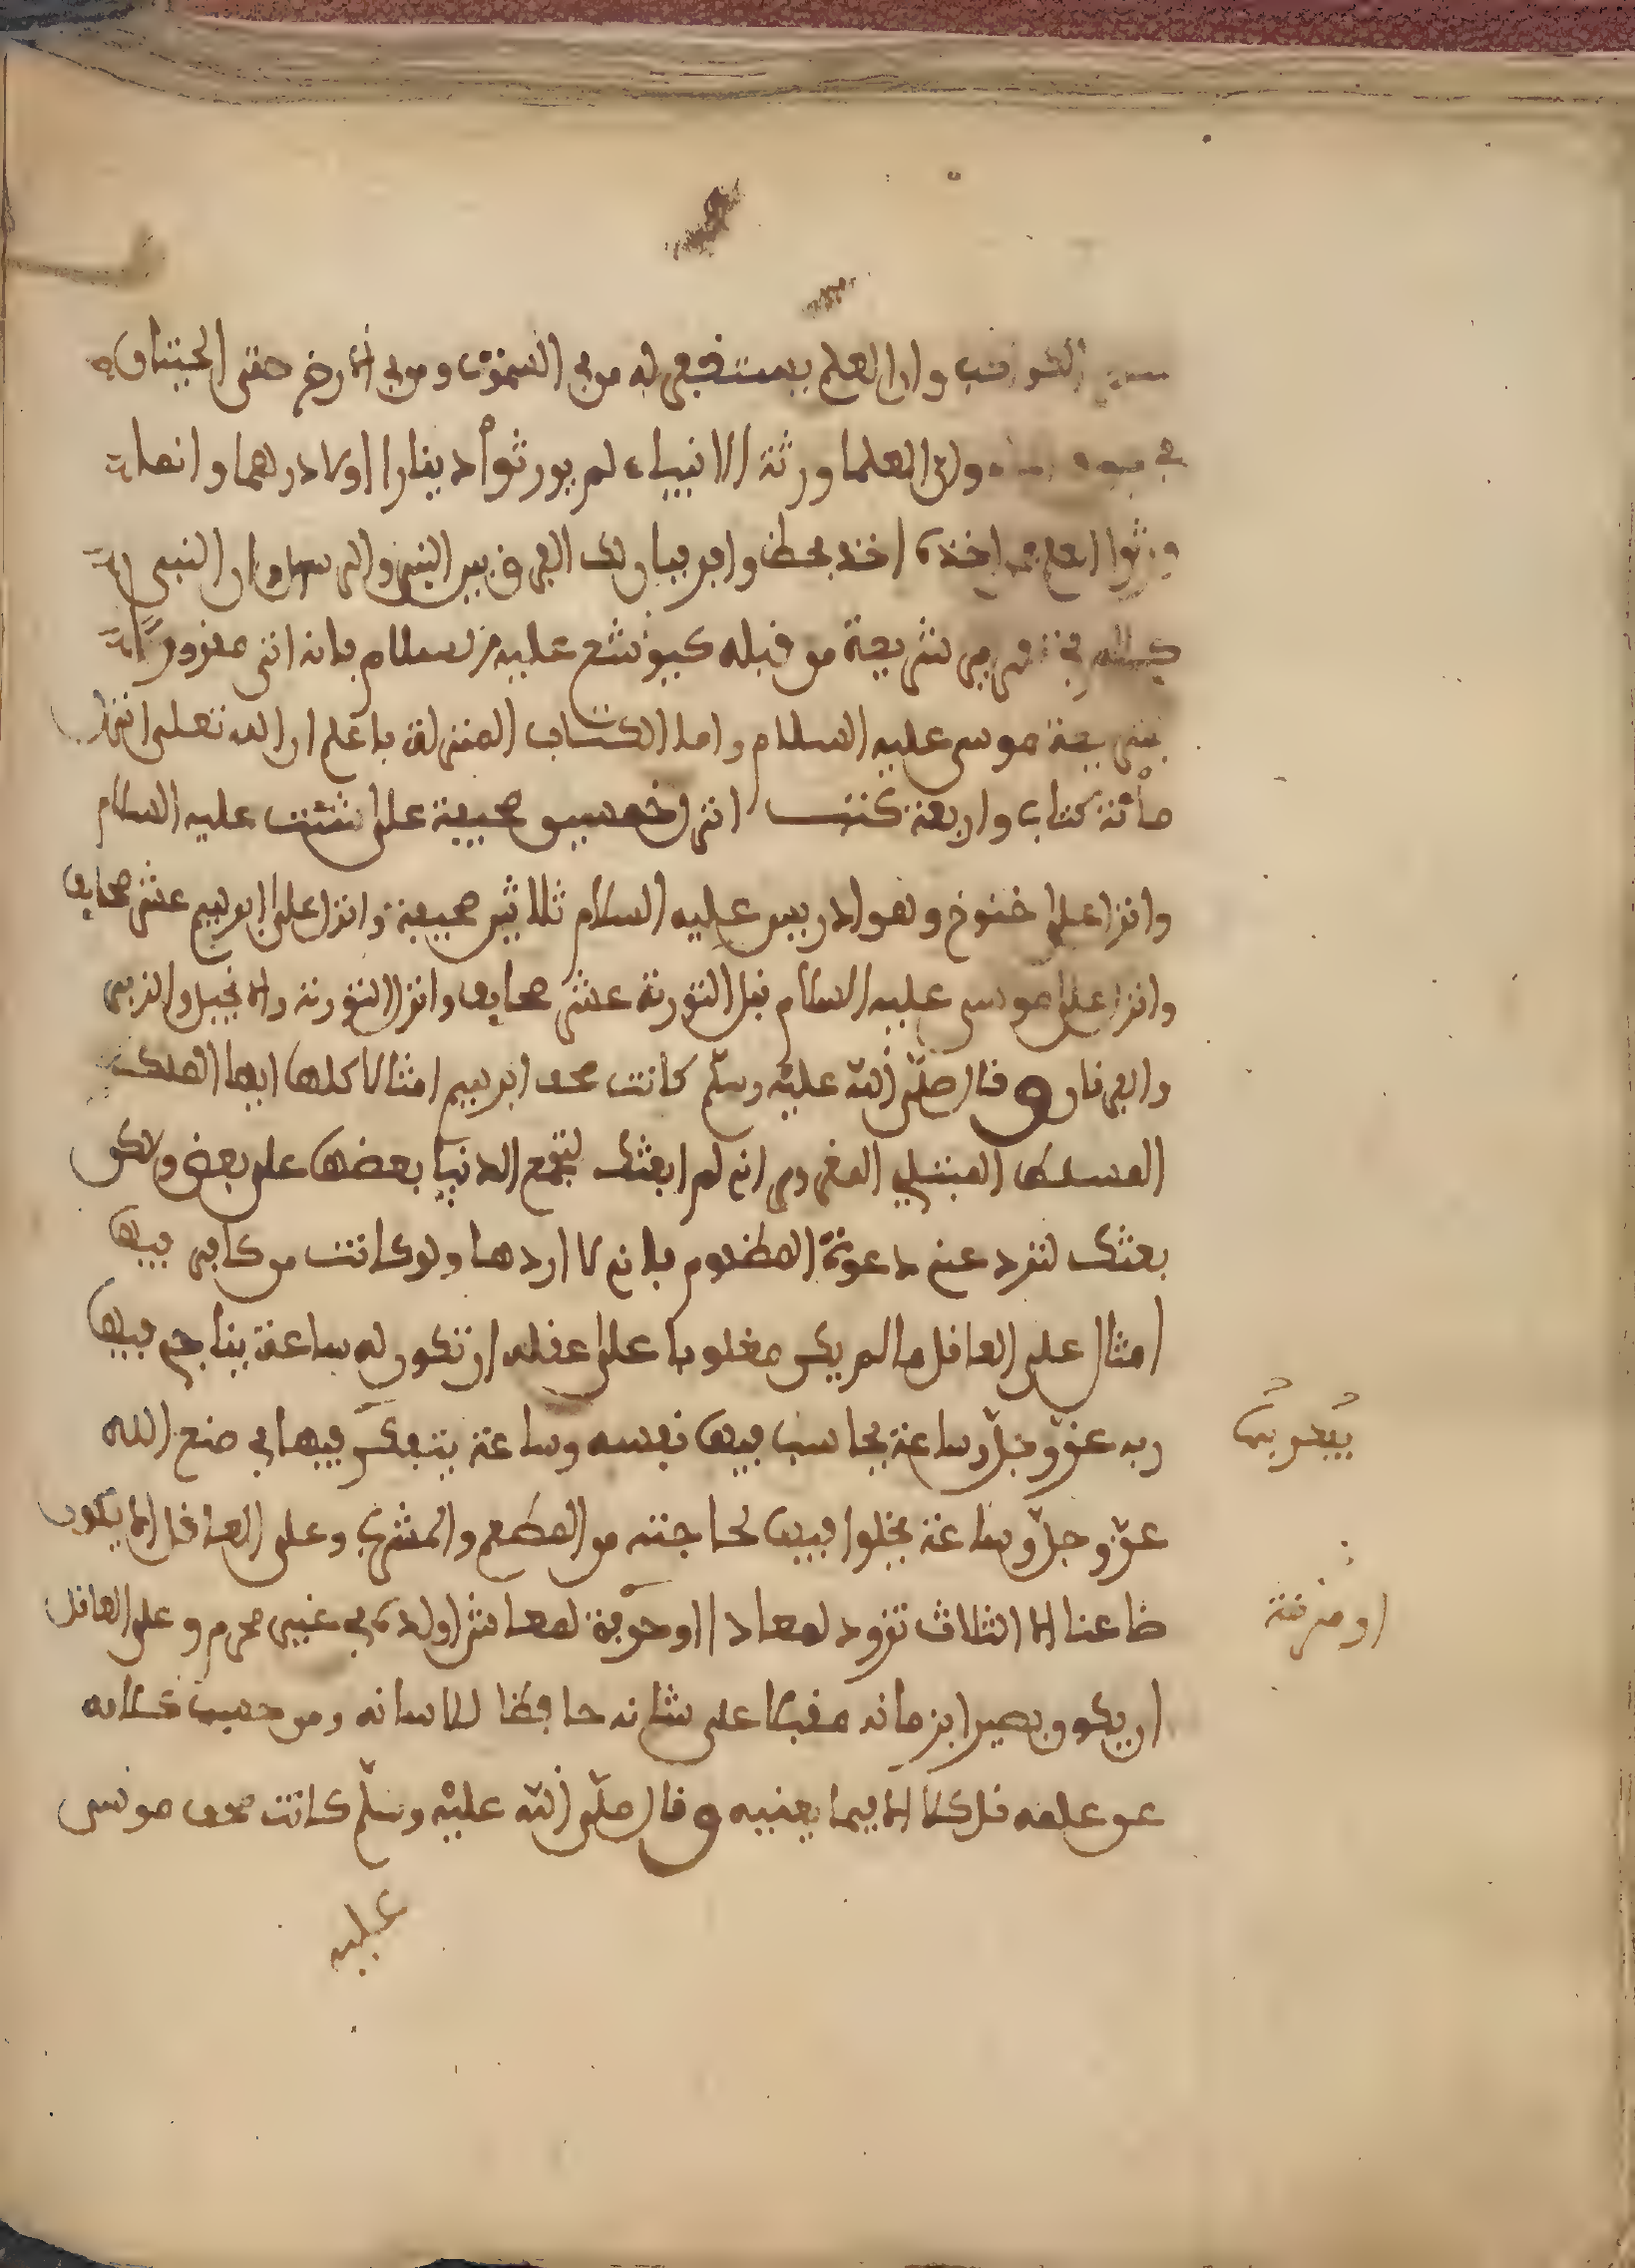 الكواكب وان العلم يستغفر له من في السموت ومن في الارض حتى الحيتان
في وان العلما ورثة الانبياء لم يورثوا دينارا اولا درهما وانما
ورثوا العلم فمن اخذه اخذ بحظ وافر فبان لك الفرق بين النبي والرسول وان النبي
من شريعة من قبله كيوشع عليه السلام فانه اتى مقررا
بشريعة موسى عليه السلام واما الكتاب المنزلة فاعلم ان الله تعلى انزل
مائة كتاب واربعة كتب انزل خمسين صحيفة على شئت عليه السلام
وانزل على خنوخ وهو ادريس عليه السلام ثلاثين صحيفة وانزل على ابرهيم عشر صحايف
وانزل على موسى عليه السلام قبل التورية عشر صحايف وانزل التورية والانجيل والزبور
والفرقان وقال صلى الله عليه وسلم كانت صحف ابرهيم امثالا كلها ايها الملك
المسلط المبتلي المغرور اني لم ابعثك لتجمع الدنيا بعضها على بعض ولاكن
بعثتك لترد عني دعوة المظلوم فاني لا اردها ولو كانت من كافر فيها
امثال على العاقل ما لم يكن مغلوبا على عقله ان تكون له ساعة يناجي فيها
ربه عز وجل وساعة يحاسب فيها نفسه وساعة يتفكر فيها في صنع الله
عز وجل وساعة يخلوا فيها لحاجته من المطعم والمشرب وعلى العاقل الا يكون
ظاعنا الا لثلاث تزود لمعاد او حرفة لمعاش اولذة في غير محرم وعلى العاقل
ان يكون بصيرا بزمانه مقبلا على شانه حافظا للسانه ومن حسب كلامه
من علمه قل كلامه الا فيما يعنيه وقال صلى الله عليه وسلم كانت صحف موسى
عليه
او مرمة